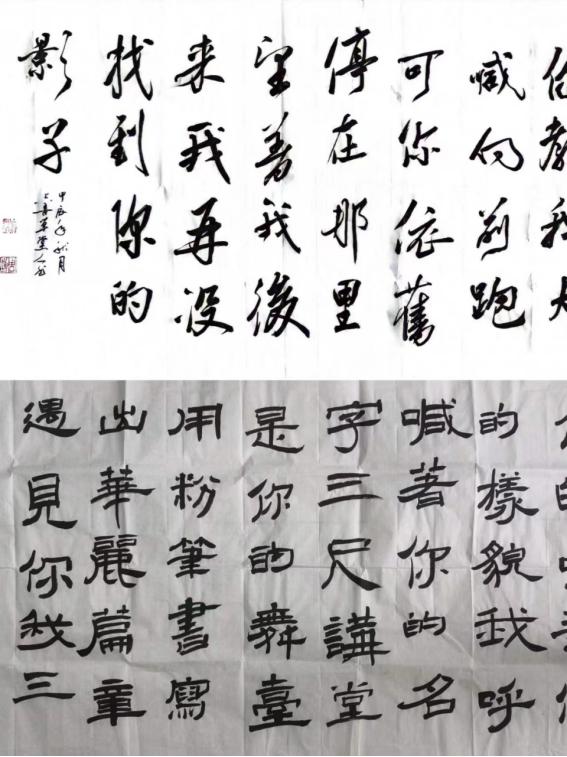 喊向前跑
可你依舊
停在那里
望着我後
来我再没
找到你的
影子
的樣貌我呼
喊著你的名
字三尺講堂
是你的舞臺
用粉筆書寫
出華麗篇章
遇見你我三